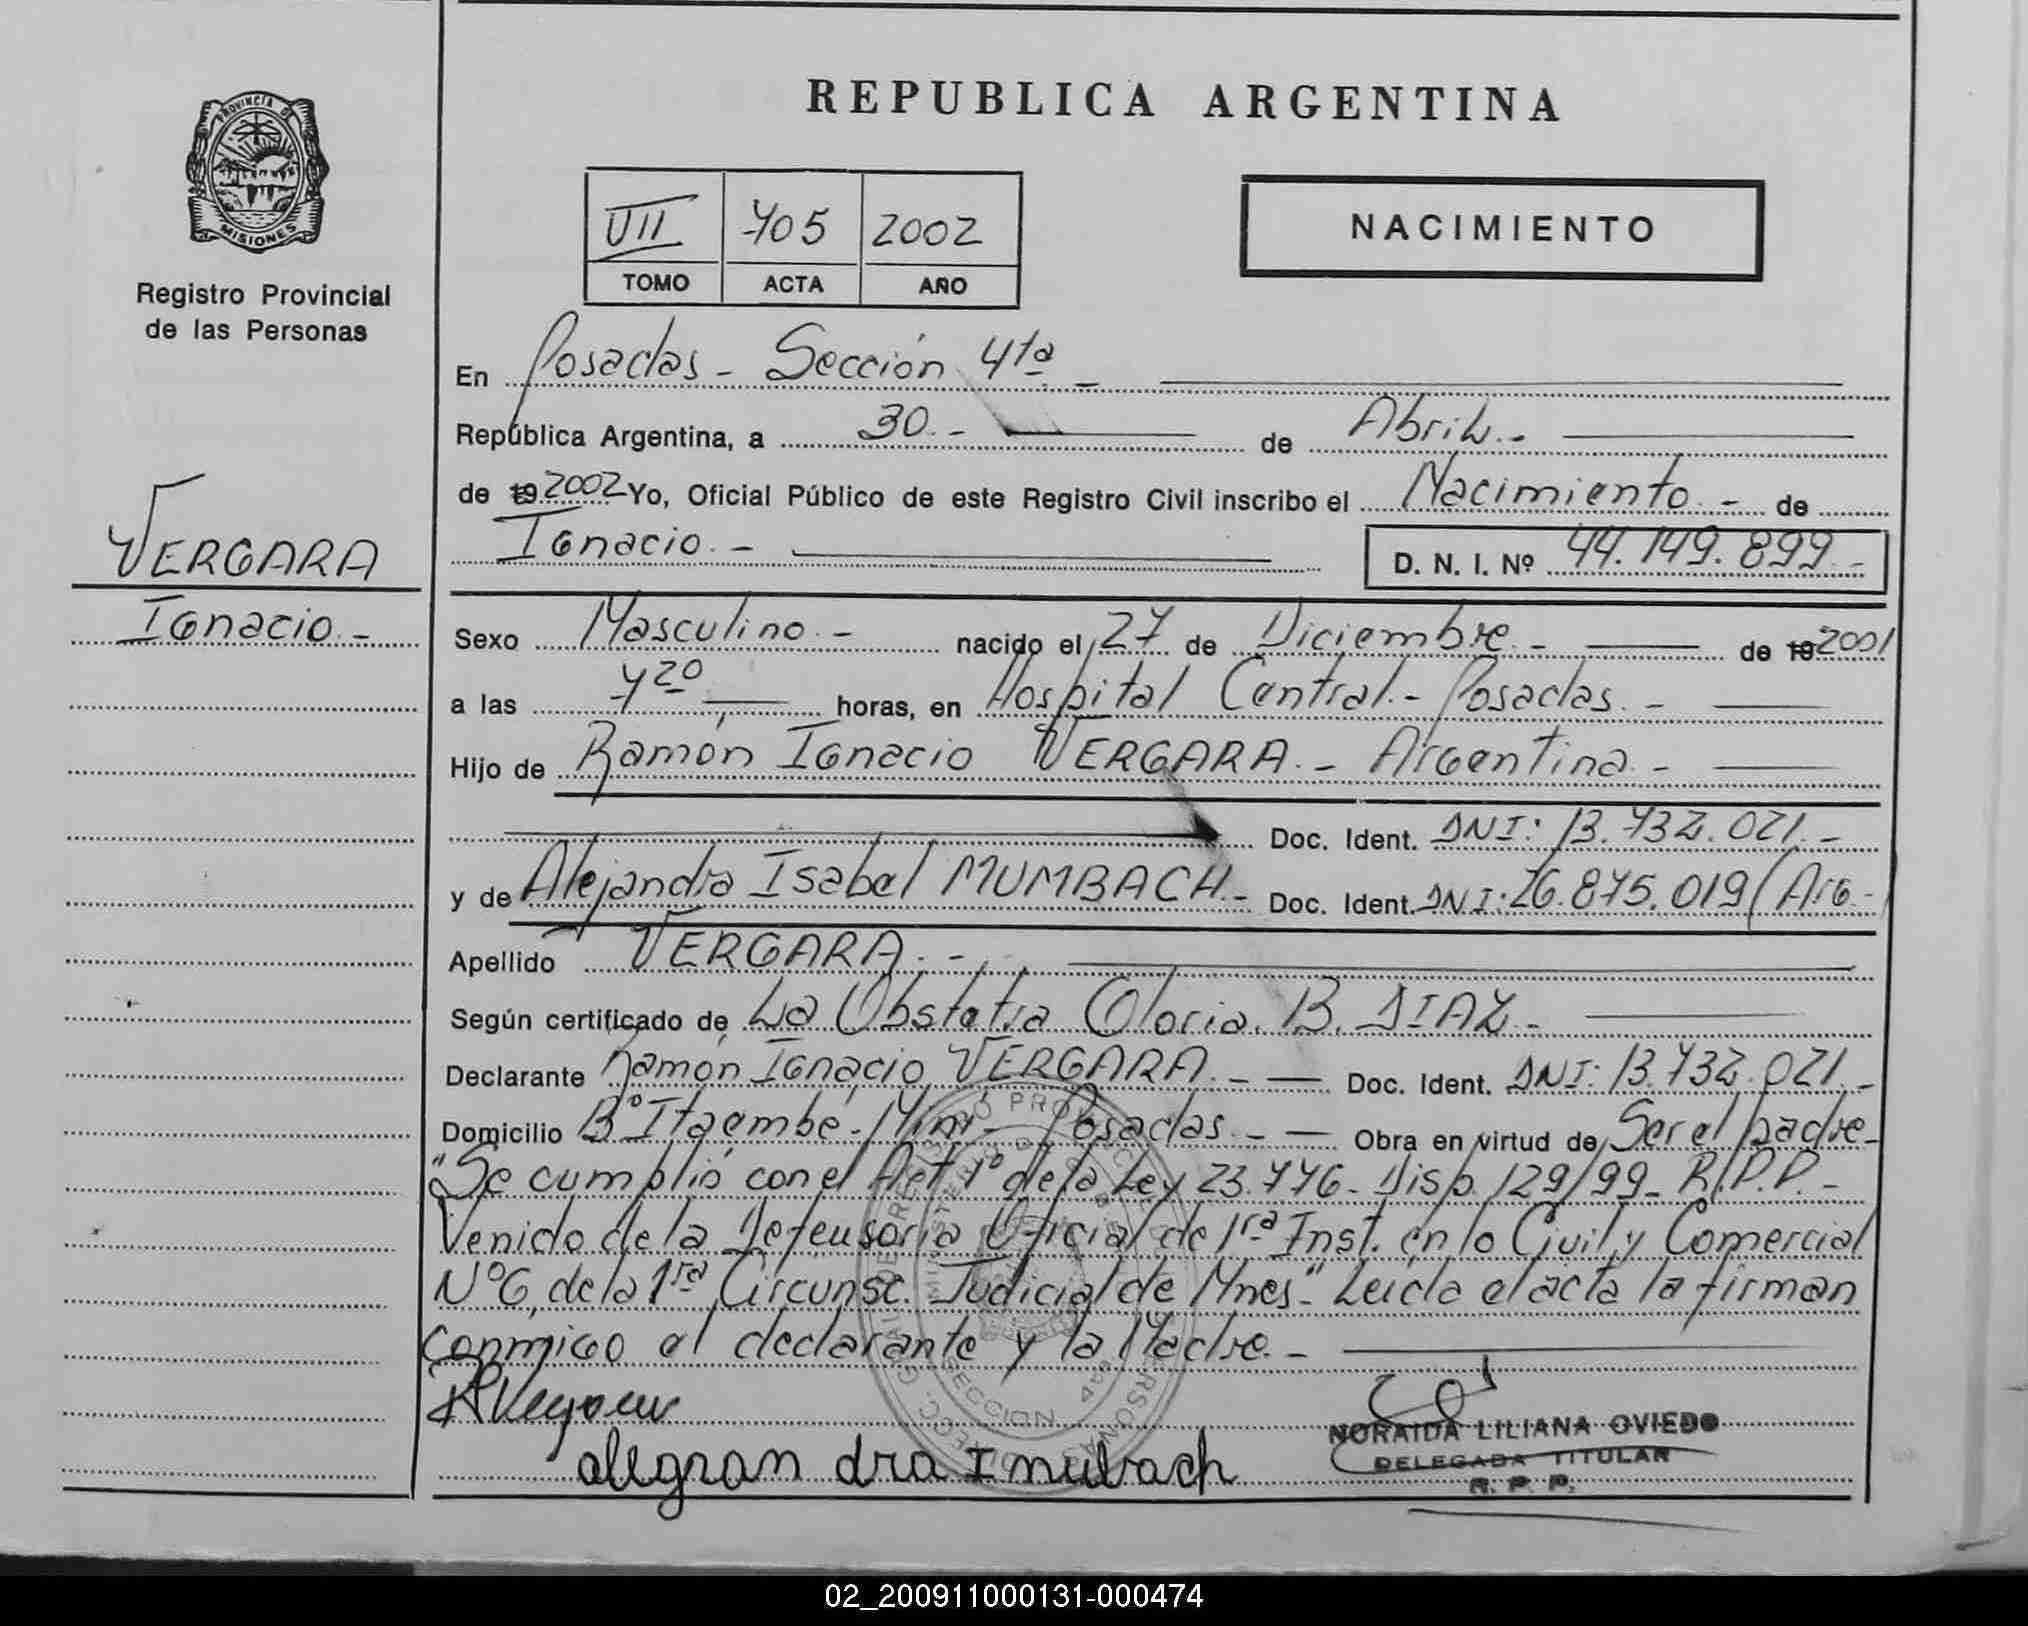 REPUBLICA ARGENTINA
PROVINCIA DE
MISIONES
Registro Provincial
de las Personas
VII 705 2002
TOMO ACTA AÑO
NACIMIENTO
En Posadas - Sección 4ta -
República Argentina, a 30.- de Abril.-
de 19 2002 Yo, Oficial Público de este Registro Civil inscribo el Nacimiento.- de
Ignacio.- D. N. I. Nº 44.149.899.-
VERGARA
Ignacio.-
Sexo Masculino.- nacido el 27 de Diciembre.- de 19 2001
a las 7 20 horas, en Hospital Central.- Posadas.-
Hijo de Ramón Ignacio VERGARA.- Argentina.-
Doc. Ident. DNI: 13.732.021.-
y de Alejandra Isabel MUMBACH.- Doc. Ident. DNI: 26.875.019 (Arg.-
Apellido VERGARA.-
Según certificado de La Obstetra Gloria B. DIAZ.-
Declarante Ramón Ignacio VERGARA.- Doc. Ident. DNI: 13.732.021.-
Domicilio Bº Itaembé-Miní- Posadas.- Obra en virtud de Ser el padre-
"Se cumplió con el Art 1º de la Ley 23.776- Disp. 129/99- R.P.P.-
Venido de la Defensoria Oficial de 1ra Inst. en lo Civil y Comercial
Nº6, de la 1ra Circunsc. Judicial de Mnes" Leida el acta la firman
conmigo el declarante y la Madre.-
NORAIDA LILIANA OVIEDO
DELEGADA TITULAR
R. P. P.
alegran dra I mubach
02_200911000131-000474